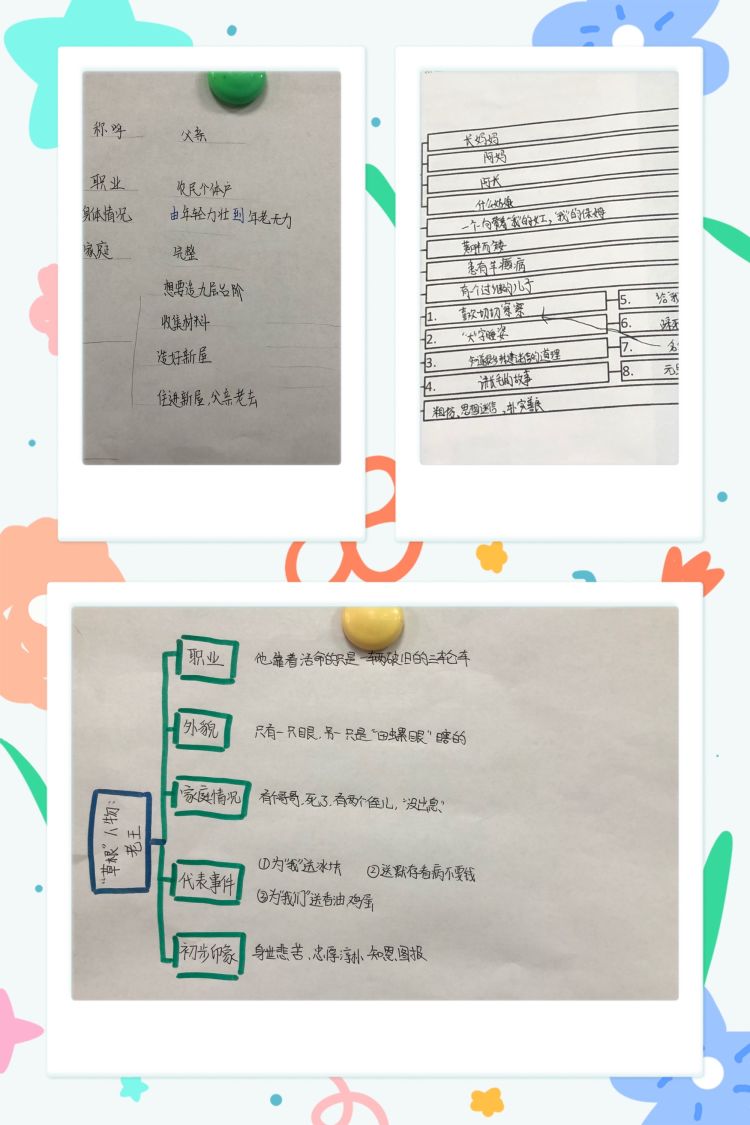 称呼 父亲
职业 农民个体户
身体情况 由年轻力壮到年老无力
家庭 完整
想要造九层台阶
收集材料
造好新屋
住进新屋,父亲老去
长妈妈
阿妈
阿长
什么姑娘
一个一向带着"我"的女工,"我"的保姆
黄胖而矮
患有羊癫病
有一个过继的儿子
1. 喜欢切切察察
5. 给我
2. "大"字睡姿
6.
3.
7.
4. 讲长毛的故事
8. 元旦
粗俗、思想迷信、朴实善良
"草根"人物:
老王
职业 他靠着活命的只是一辆破旧的三轮车
外貌 只有一只眼,另一只是"田螺眼"瞎的
家庭情况 有个哥哥,死了,有两个侄儿,"没出息"
代表事件 ①为"我"送冰块 ②送默存看病不要钱
③为"我们"送香油,鸡蛋
初步印象 身世悲苦、忠厚淳朴、知恩图报